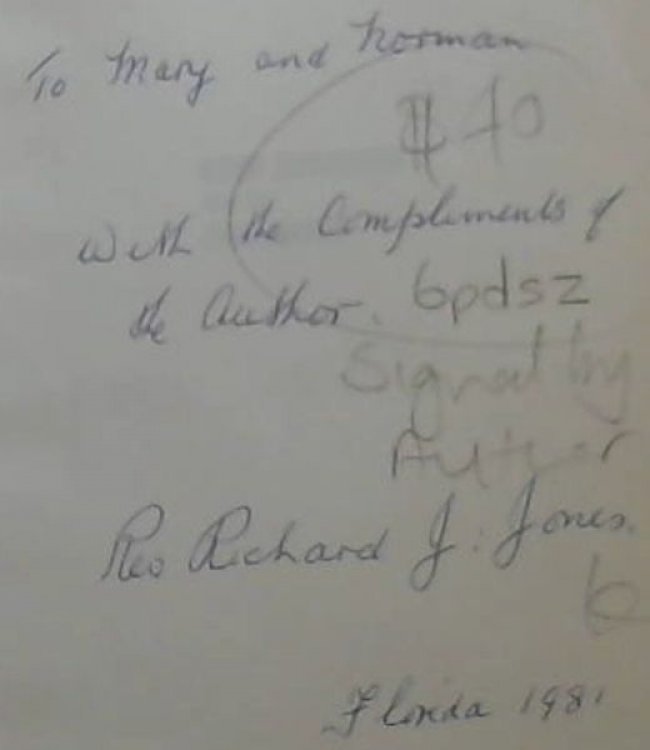 To Mary and Norman
$40
With the Compliments of
the Author. 6pdsz
Signed by
Author
Rev Richard J. Jones.
Florida 1981